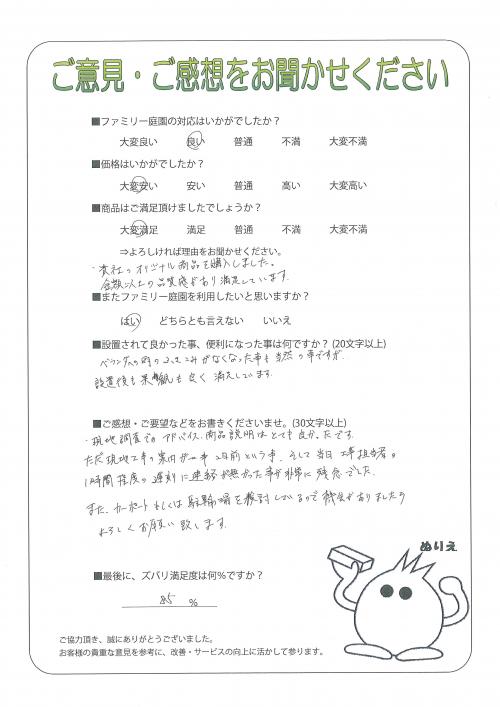 ご意見・ご感想をお聞かせください
■ファミリー庭園の対応はいかがでしたか？
大変良い 良い 普通 不満 大変不満
■価格はいかがでしたか？
大変安い 安い 普通 高い 大変高い
■商品はご満足頂けましたでしょうか？
大変満足 満足 普通 不満 大変不満
⇒よろしければ理由をお聞かせください。
・貴社のオリジナル商品を購入しました。
金額以上の品質感があり満足しています。
■またファミリー庭園を利用したいと思いますか？
はい どちらとも言えない いいえ
■設置されて良かった事、便利になった事は何ですか？(20文字以上)
ベランダへの雨のふきこみがなくなった事も当然の事ですが
設置後も景観も良く満足しています。
■ご感想・ご要望などをお書きくださいませ。(30文字以上)
・現地調査でのアドバイス、商品説明はとても良かったです。
ただ現地工事の案内が工事2日前という事、そして当日工事担当者の
1時間程度の遅刻に連絡が無かった事が非常に残念でした。
また、カーポートもしくは駐輪場を検討しているので機会がありましたら
よろしくお願い致します。
ぬりえ
■最後に、ズバリ満足度は何％ですか？
85 %
ご協力頂き、誠にありがとうございました。
お客様の貴重な意見を参考に、改善・サービスの向上に活かして参ります。